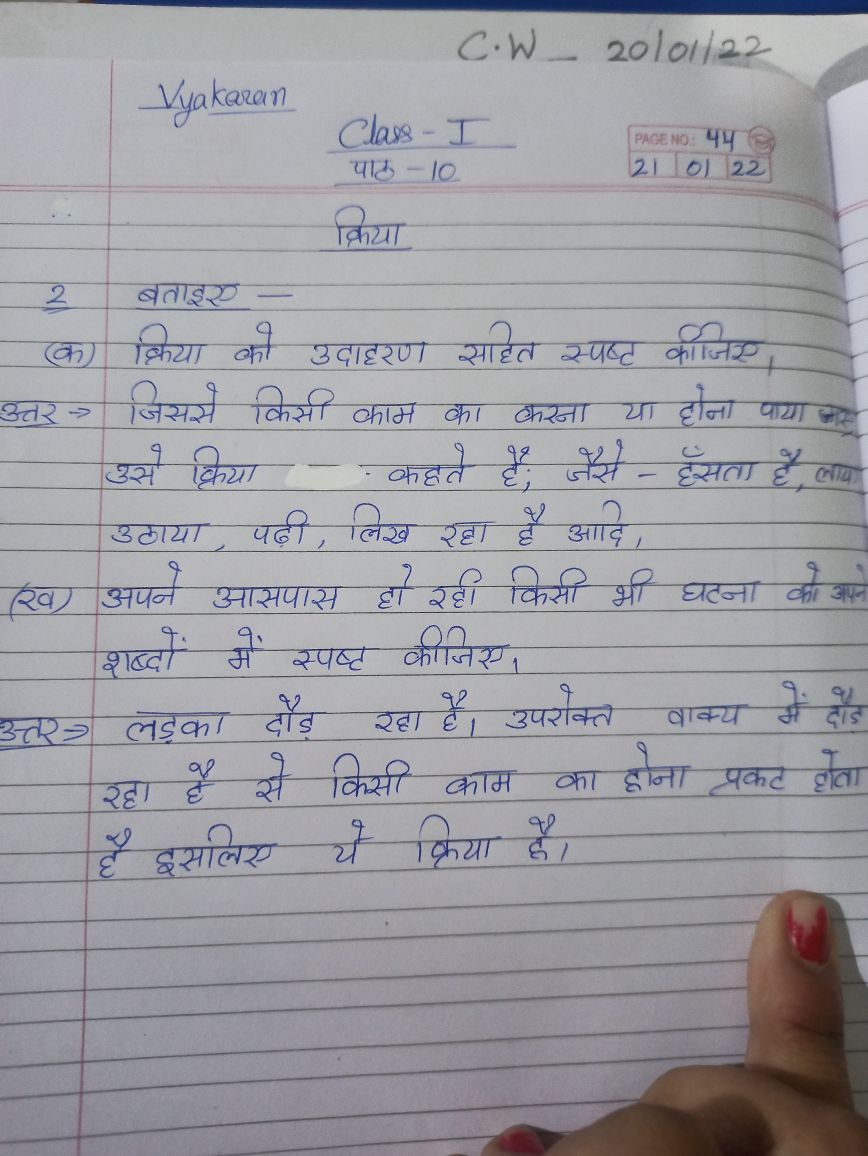 C.W - 20/01/22
Vyakaran
Class - I
PAGE NO.: 44
पाठ - 10
21 01 22
क्रिया
2 बताइए —
(क) क्रिया को उदाहरण सहित स्पष्ट कीजिए,
उत्तर → जिससे किसी काम का करना या होना पाया जाए
उसे क्रिया कहते हैं; जैसे - हँसता है, लाया
उठाया, पढ़ी, लिख रहा है आदि,
(ख) अपने आसपास हो रही किसी भी घटना को अपने
शब्दों में स्पष्ट कीजिए,
उत्तर ⇒ लड़का दौड़ रहा है। उपरोक्त वाक्य में दौड़
रहा है से किसी काम का होना प्रकट होता
है इसलिए ये क्रिया है।